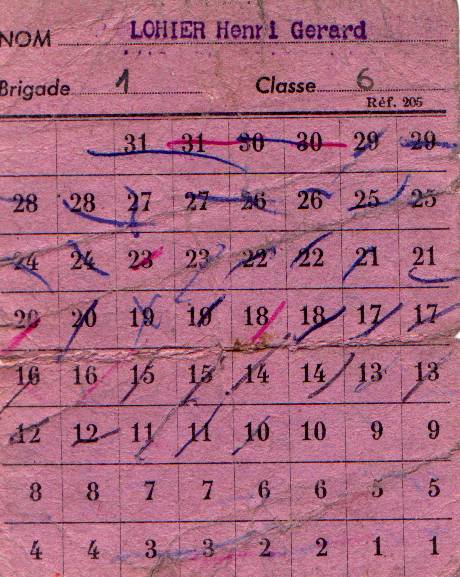 NOM LOHIER Henri Gerard
Brigade 1 Classe 6
Réf. 205
31 31 30 30 29 29
28 28 27 27 26 26 25 25
24 24 23 23 22 22 21 21
20 20 19 19 18 18 17 17
16 16 15 15 14 14 13 13
12 12 11 11 10 10 9 9
8 8 7 7 6 6 5 5
4 4 3 3 2 2 1 1